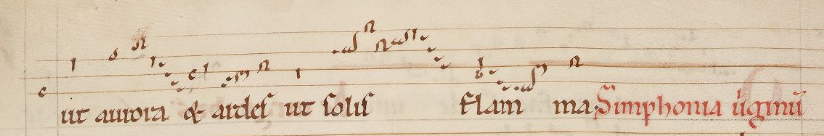 ut aurora & ardes ut solis flamma. Simphonia uͥginū